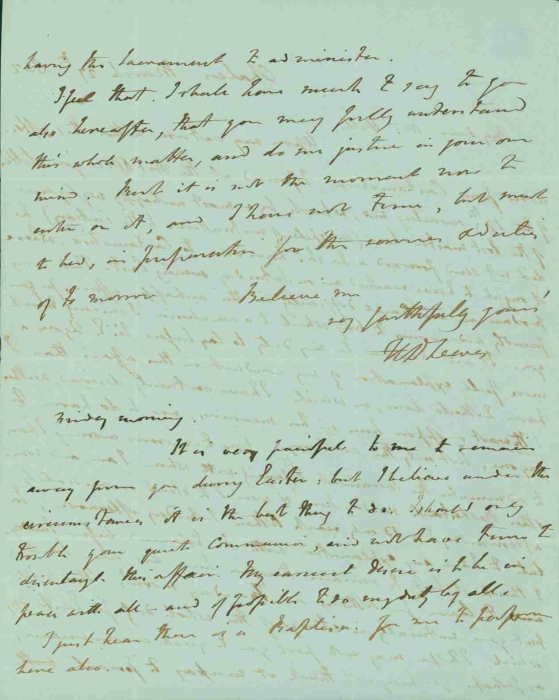 having the Sacrament to administer.
I feel that I shall have much to say to you
also hereafter, that you may fully understand
this whole matter, and do me justice in your own
mind. But it is not the moment now to
enter on it, and I have not time, but must
to bed, in preparation for the services & duties
of to morrow Believe me
very faithfully yours
H D Leeves
Friday morning.
It is very painful to me to remain
away from you during Easter, but I believe under the
circumstances it is the best thing to do. I should only
trouble your quiet Communion, and not have time to
disentangle this affair. My earnest desire is to be in
peace with all - and if possible to do my duty by all.
I just hear there is a Baptism for me to perform
here also.